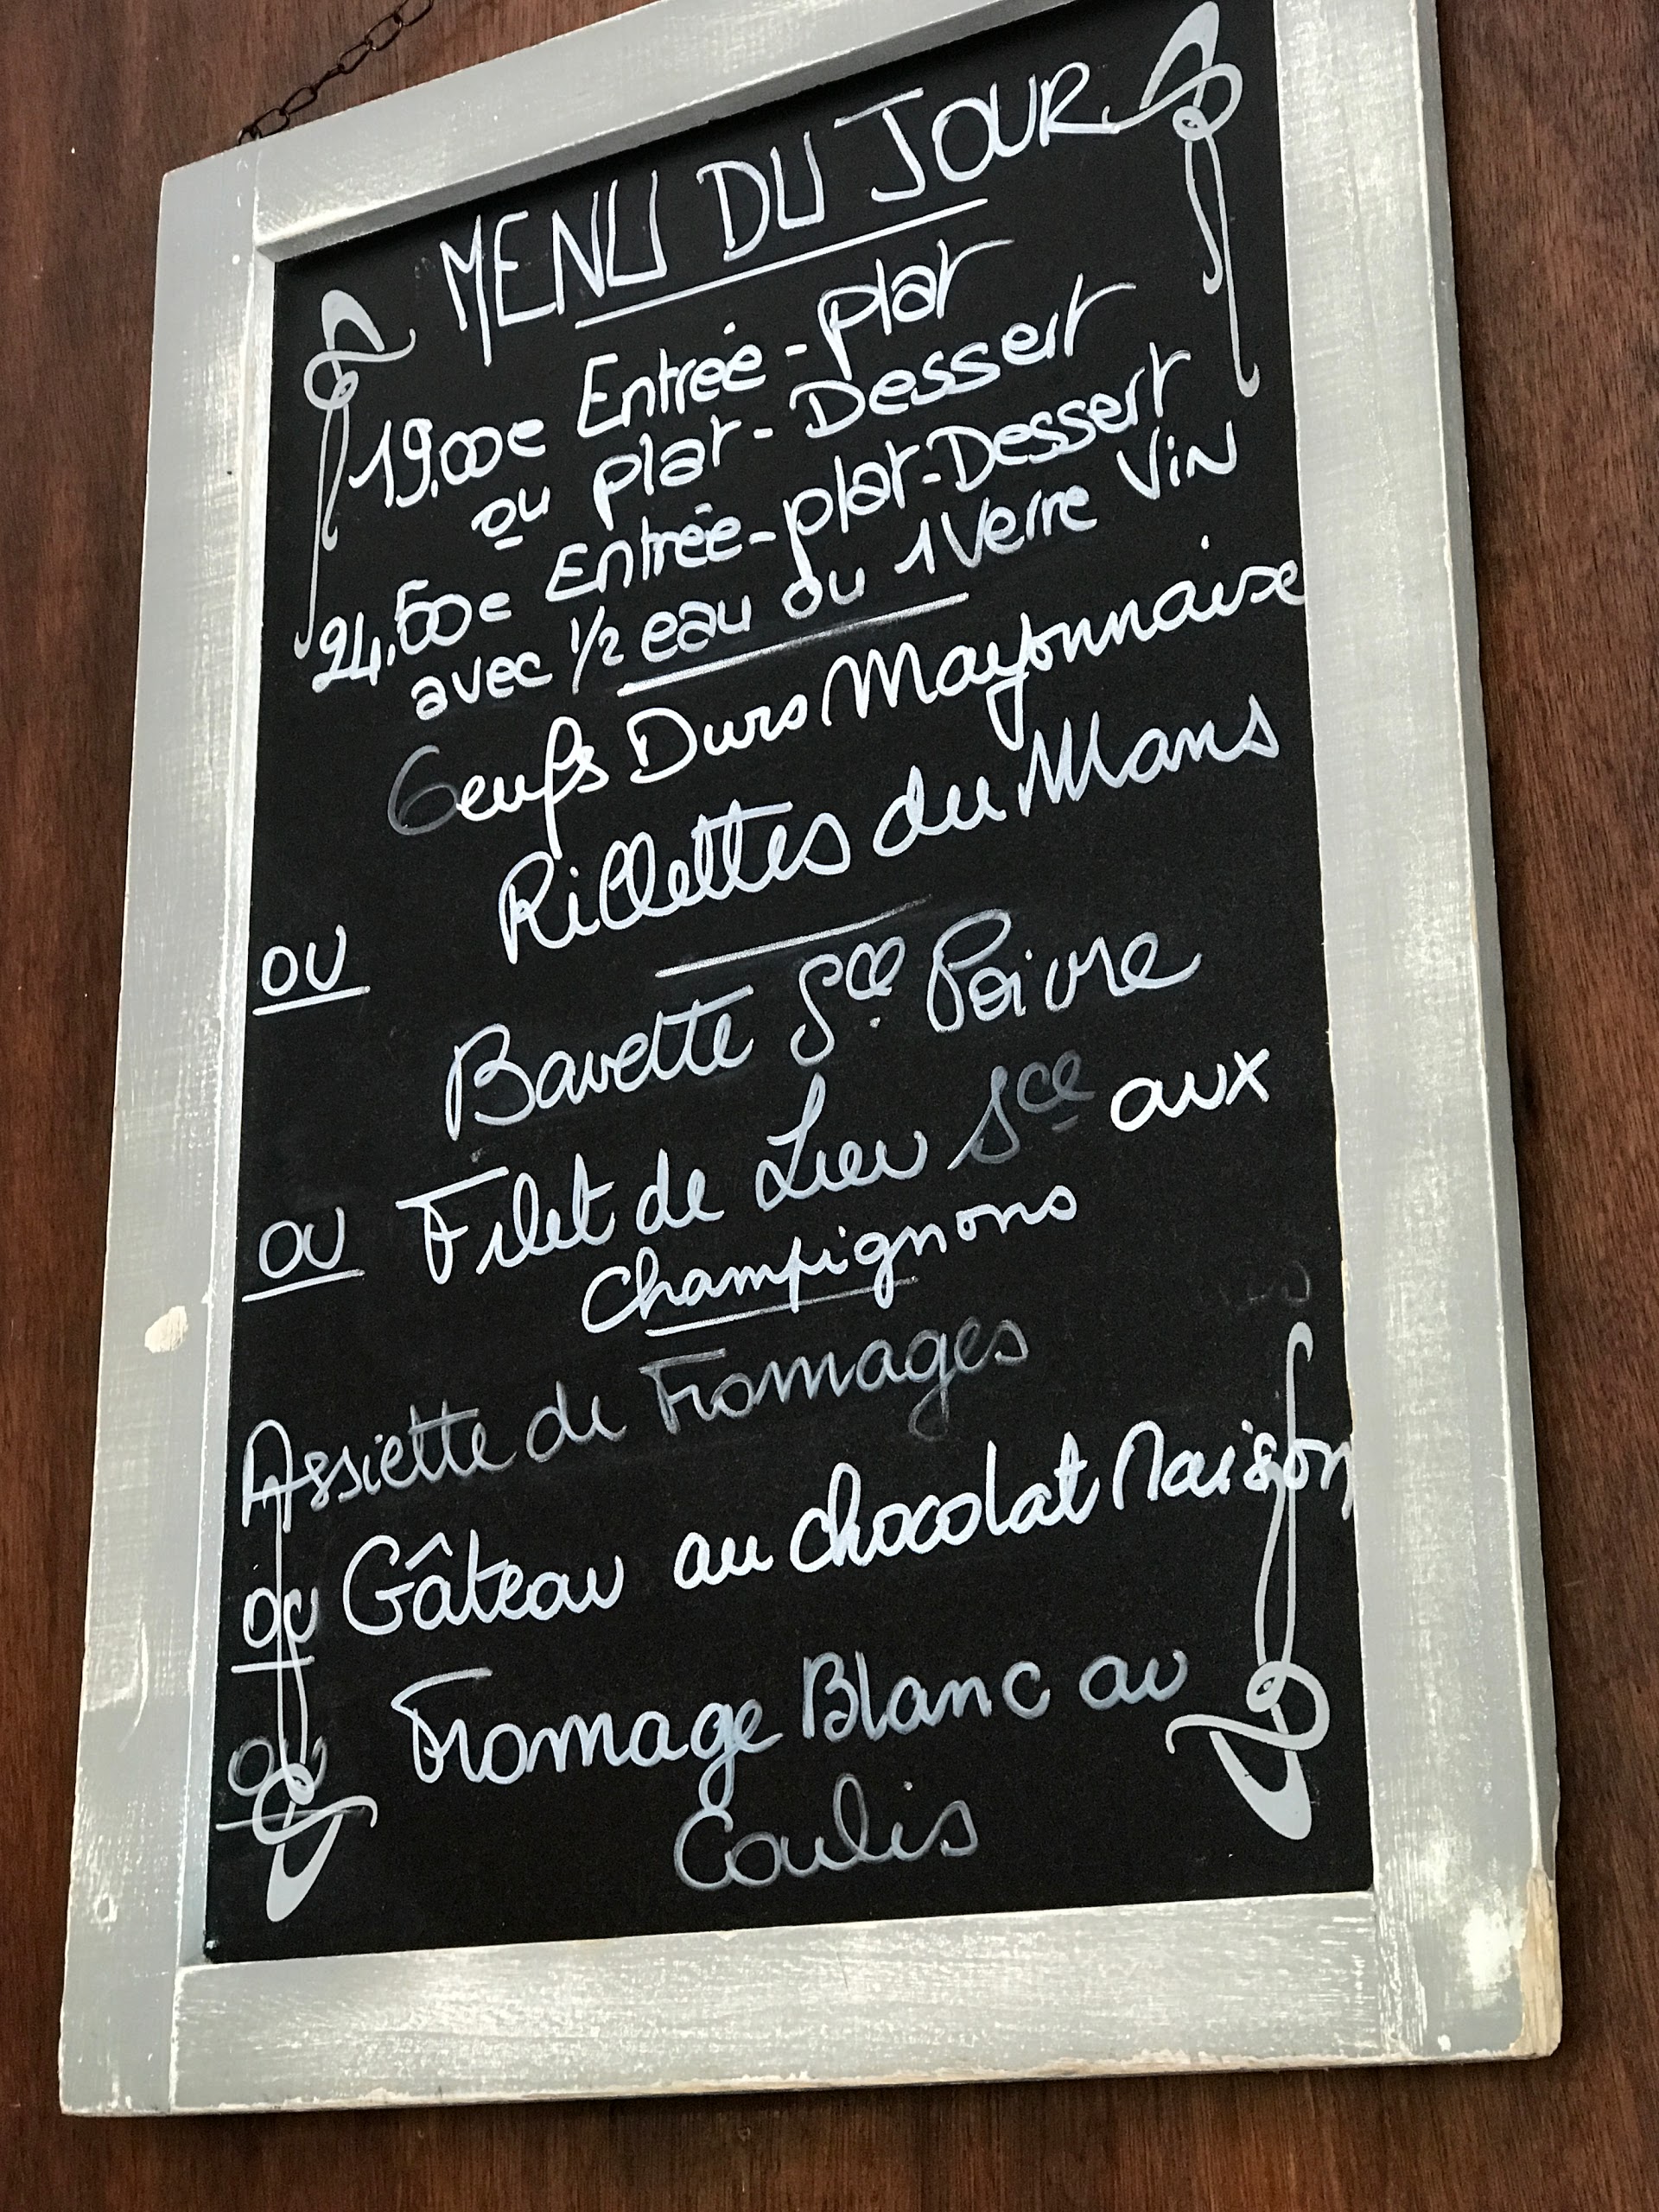 MENU DU JOUR
19.00e Entrée - plat
ou plat - Dessert
24.50e Entrée - plat - Dessert
avec 1/2 eau ou 1 Verre ViN
Oeufs Durs Mayonnaise
ou Rillettes du Mans
Bavette Sce Poivre
ou Filet de Lieu Sce aux
Champignons
Assiette de Fromages
ou Gâteau au chocolat Maison
ou Fromage Blanc au
Coulis